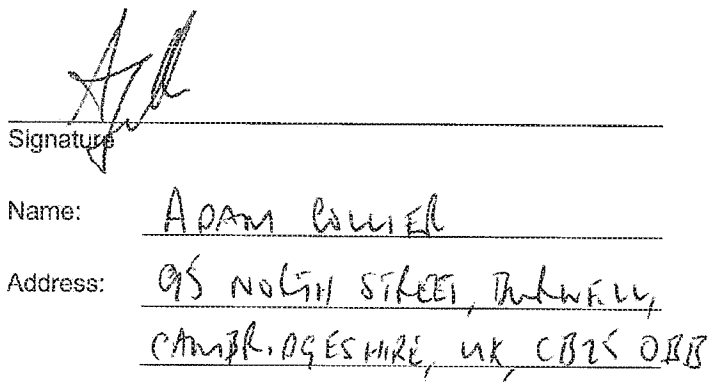 Signature
Name: ADAM COLLIER
Address: 95 NORTH STREET, BURWELL,
CAMBRIDGESHIRE, UK, CB25 0BB